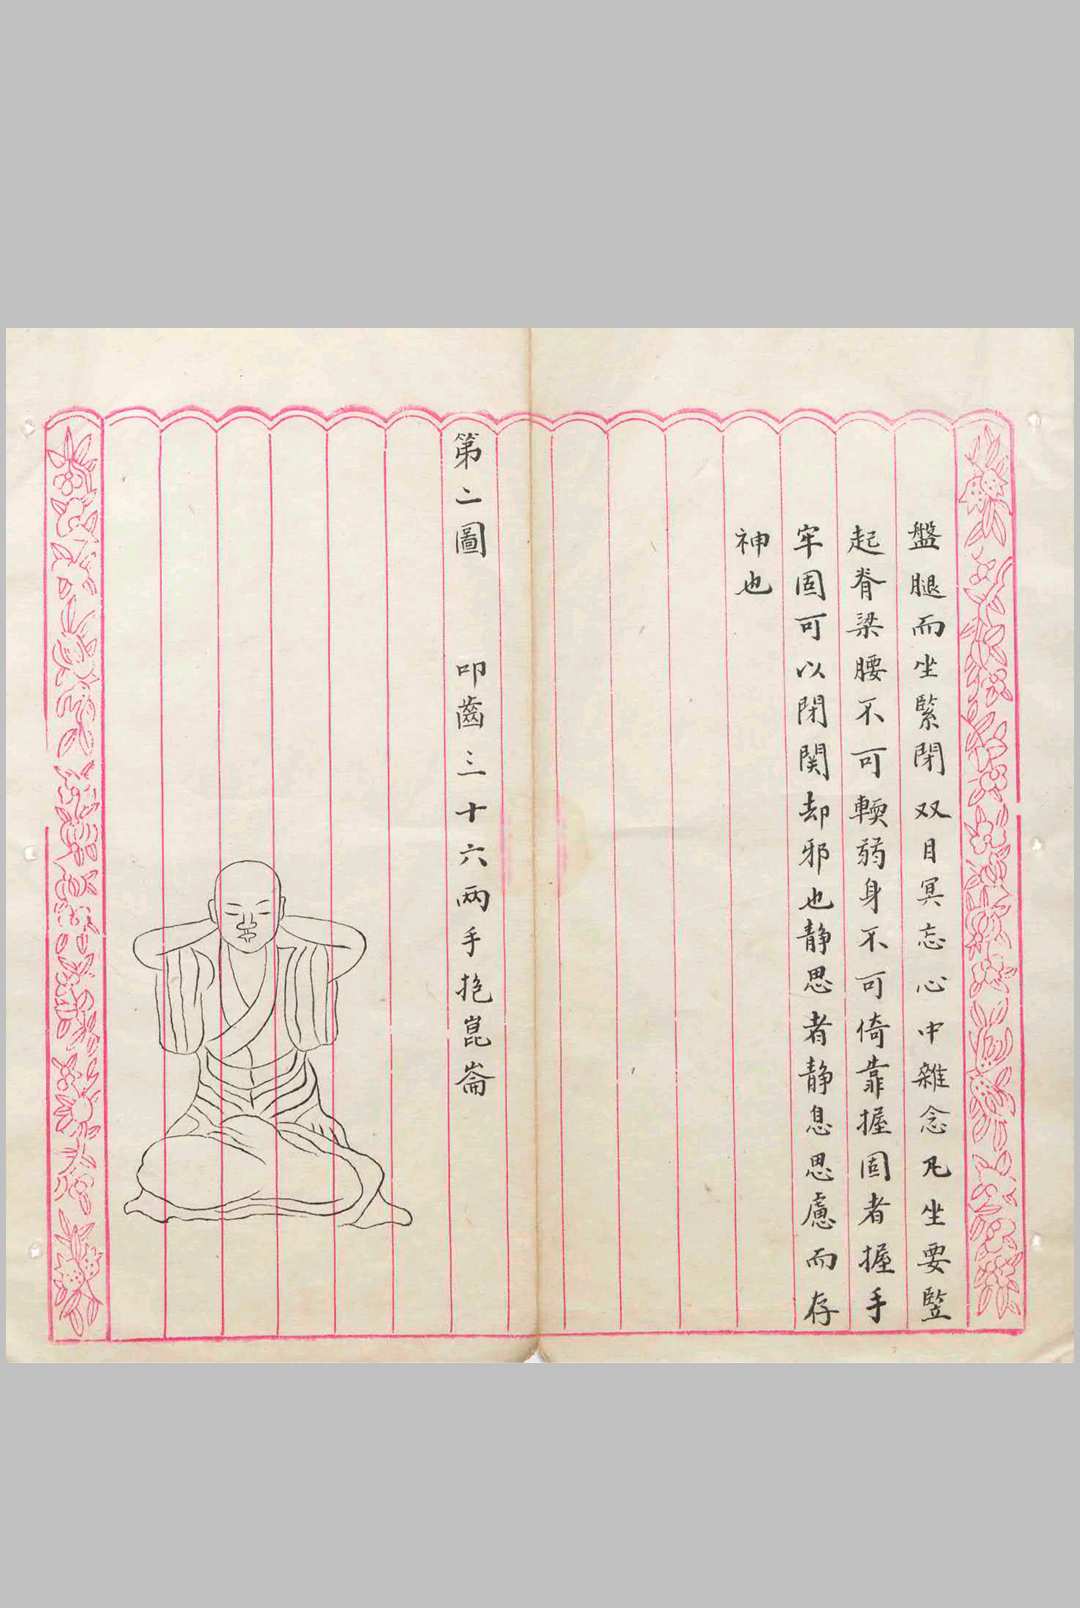 盤腿而坐緊閉双目冥忘心中雜念凡坐要竪
起脊梁腰不可輭弱身不可倚靠握固者握手
牢固可以閉関却邪也静思者静息思慮而存
神也
第二圖 叩齒三十六兩手抱崑崙